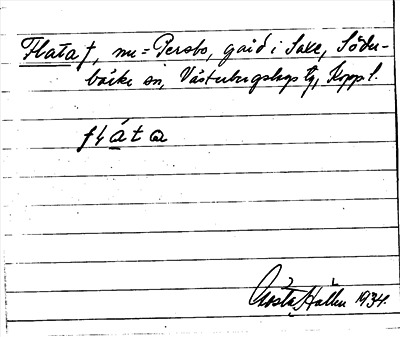 Flata †, nu = Persbo, gård i Saxe, Söder-
bärke sn, Västerbergslags tg, Kopp l.
flåta
Gösta Hallen 1934.